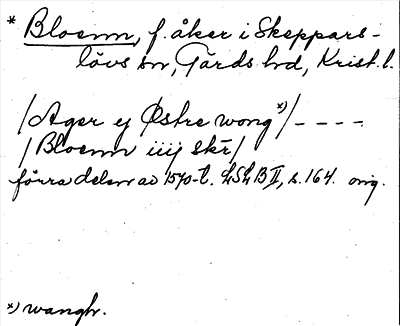 * Bloenn, f. åker i Skeppars-
lövs sn, Gärds hd, Krist. l.
/Ager ej Østre wong*)/ - - - -
/Bloenn iiij skr/
förra delen av 1570-t. LSLB II, s. 164. orig.
*) wangh.